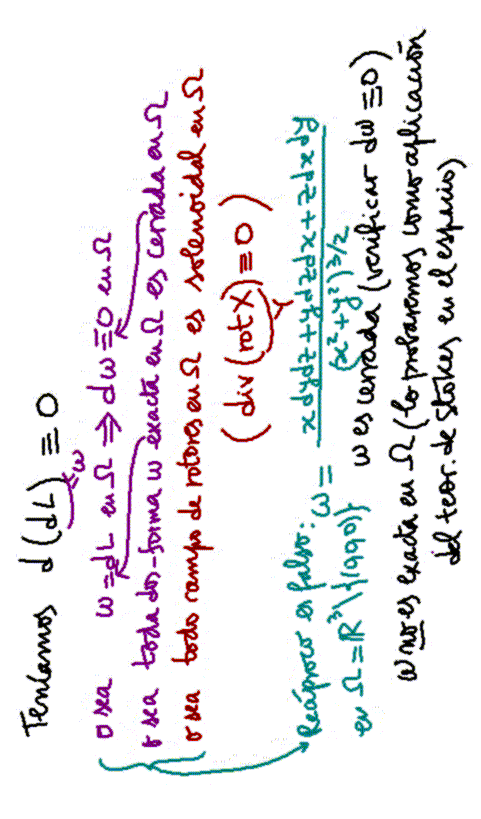 Teníamos d(dL) ≡ 0
ω
o sea ω = dL en Ω ⇒ dω ≡ 0 en Ω
o sea toda dos-forma ω exacta en Ω es cerrada en Ω
o sea todo campo de rotores en Ω es solenoidal en Ω
(div(rot X) ≡ 0)
Y
Recíproco es falso: ω = xdydz + ydzdx + zdxdy / (x²+y²)^3/2
en Ω = ℝ³\{(0,0,0)}
ω es cerrada (verificar dω ≡ 0)
ω no es exacta en Ω (lo probaremos como aplicación
del teor. de Stokes en el espacio)